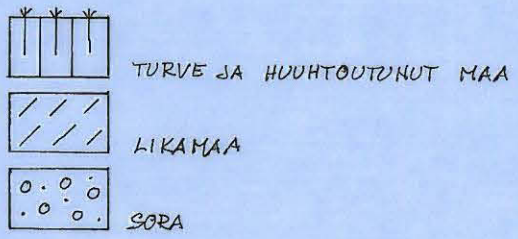 TURVE JA HUUHTOUTUNUT MAA
LIKAMAA
SORA